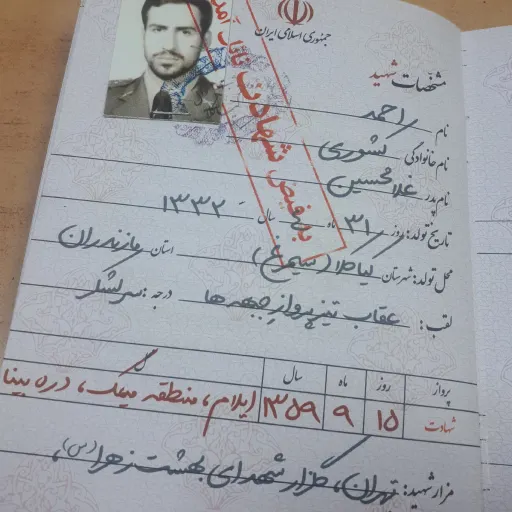 جمهوری اسلامی ایران
مشخصات شهید
به فیض شهادت نائل آمد
نام احمد
نام خانوادگی کشوری
نام پدر غلامحسین
تاریخ تولد: روز ۳۱ ماه ۴ سال ۱۳۳۲
محل تولد: شهرستان کیاکلا (سیمرغ) استان مازندران
لقب: عقاب تیز پرواز جبهه ها درجه: سرلشگر
پرواز روز ماه سال
شهادت ۱۵ ۹ ۱۳۵۹ ایلام، منطقه میمک، دره بینا
مزار شهید: تهران، گلزار شهدای بهشت زهرا (س)،